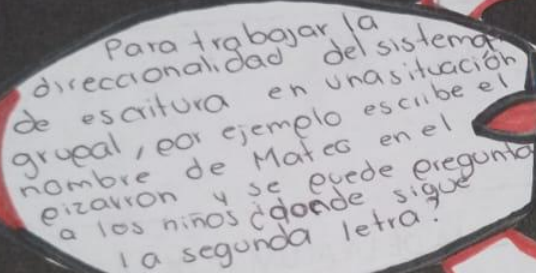 Para trabajar la
direccionalidad del sistema
de escritura en una situación
grupal, por ejemplo escribe el
nombre de Mateo en el
pizarron y se puede pregunta
a los niños ¿donde sigue
la segunda letra?